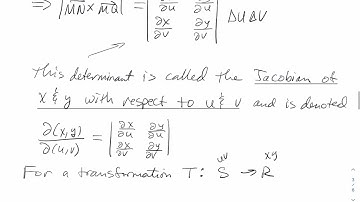 ⇒ |MN × MQ| = | ∂x/∂u ∂y/∂u ; ∂x/∂v ∂y/∂v | ΔuΔv
this determinant is called the Jacobian of
x & y with respect to u & v and is denoted
∂(x,y)/∂(u,v) = | ∂x/∂u ∂y/∂u ; ∂x/∂v ∂y/∂v |
uv xy
For a transformation T: S → R